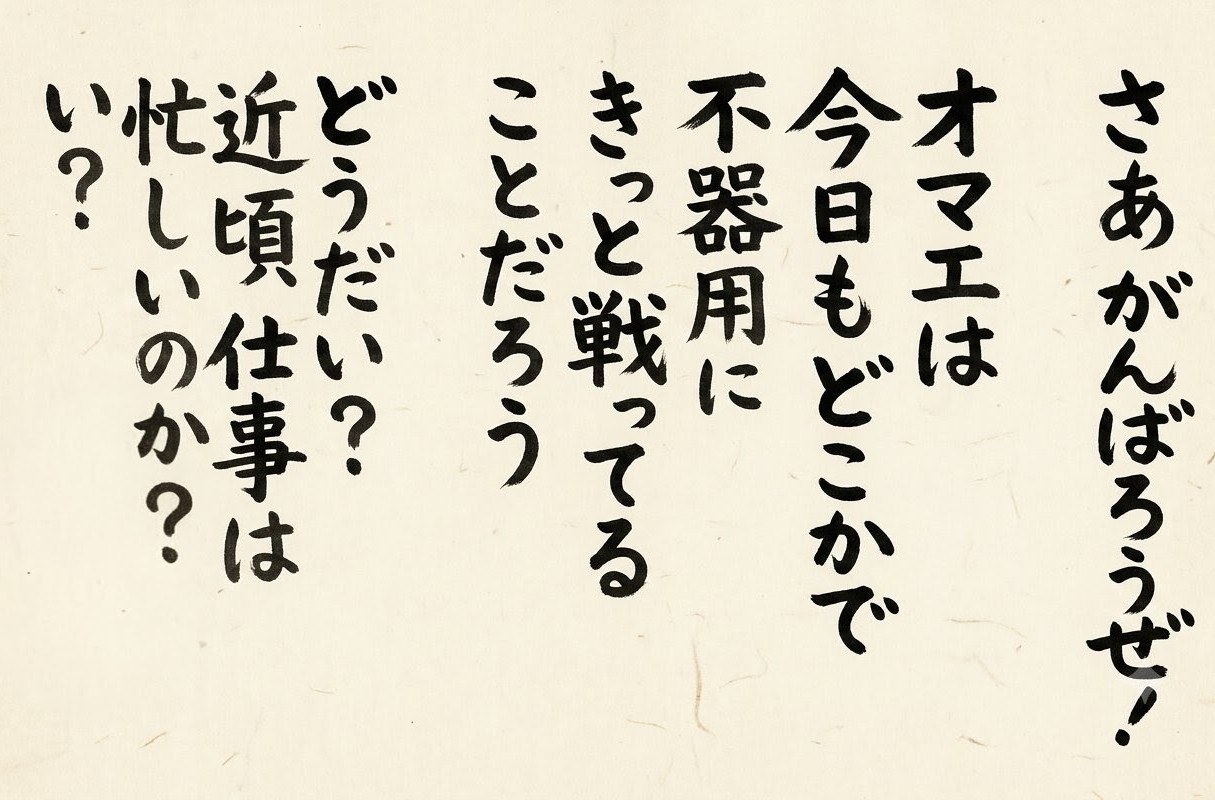 さあ がんばろうぜ！
オマエは
今日もどこかで
不器用に
きっと戦ってる
ことだろう
どうだい？
近頃 仕事は
忙しいのか？
い？